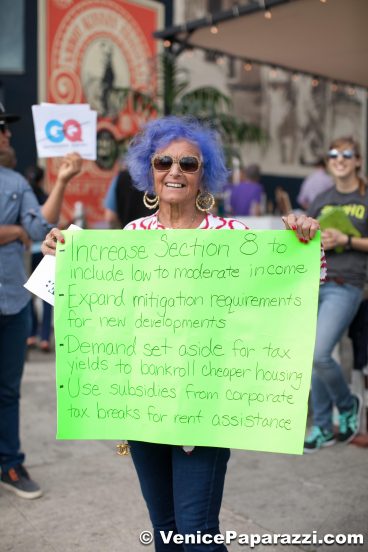 GQ
- Increase Section 8 to
include low to moderate income
- Expand mitigation requirements
for new developments
- Demand set aside for tax
yields to bankroll cheaper housing
- Use subsidies from corporate
tax breaks for rent assistance
© VenicePaparazzi.com ©